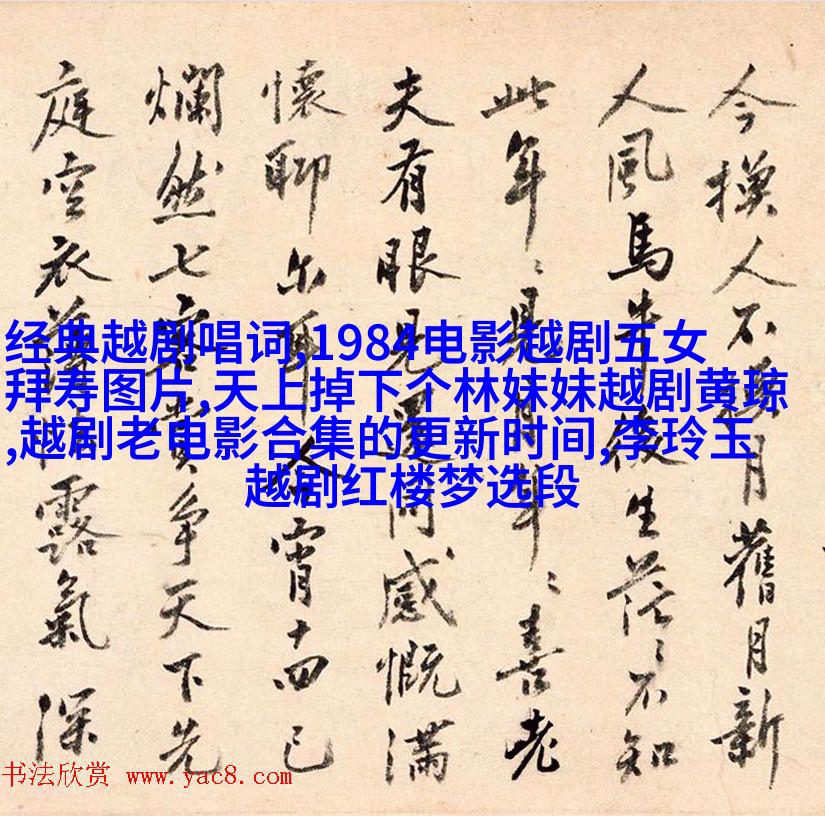 今換人不月舊月新
人風馬牛後生茫〻不知
此年〻是年〻喜老
夫有眼見同感慨滿
懷聊尔耳宵十四已
爛然七寶爭天下先
庭空衣薄露氣深
经典越剧唱词,1984电影越剧五女
拜寿图片,天上掉下个林妹妹越剧黄琼
,越剧老电影合集的更新时间,李玲玉
越剧红楼梦选段
书法欣赏 www.yac8.com